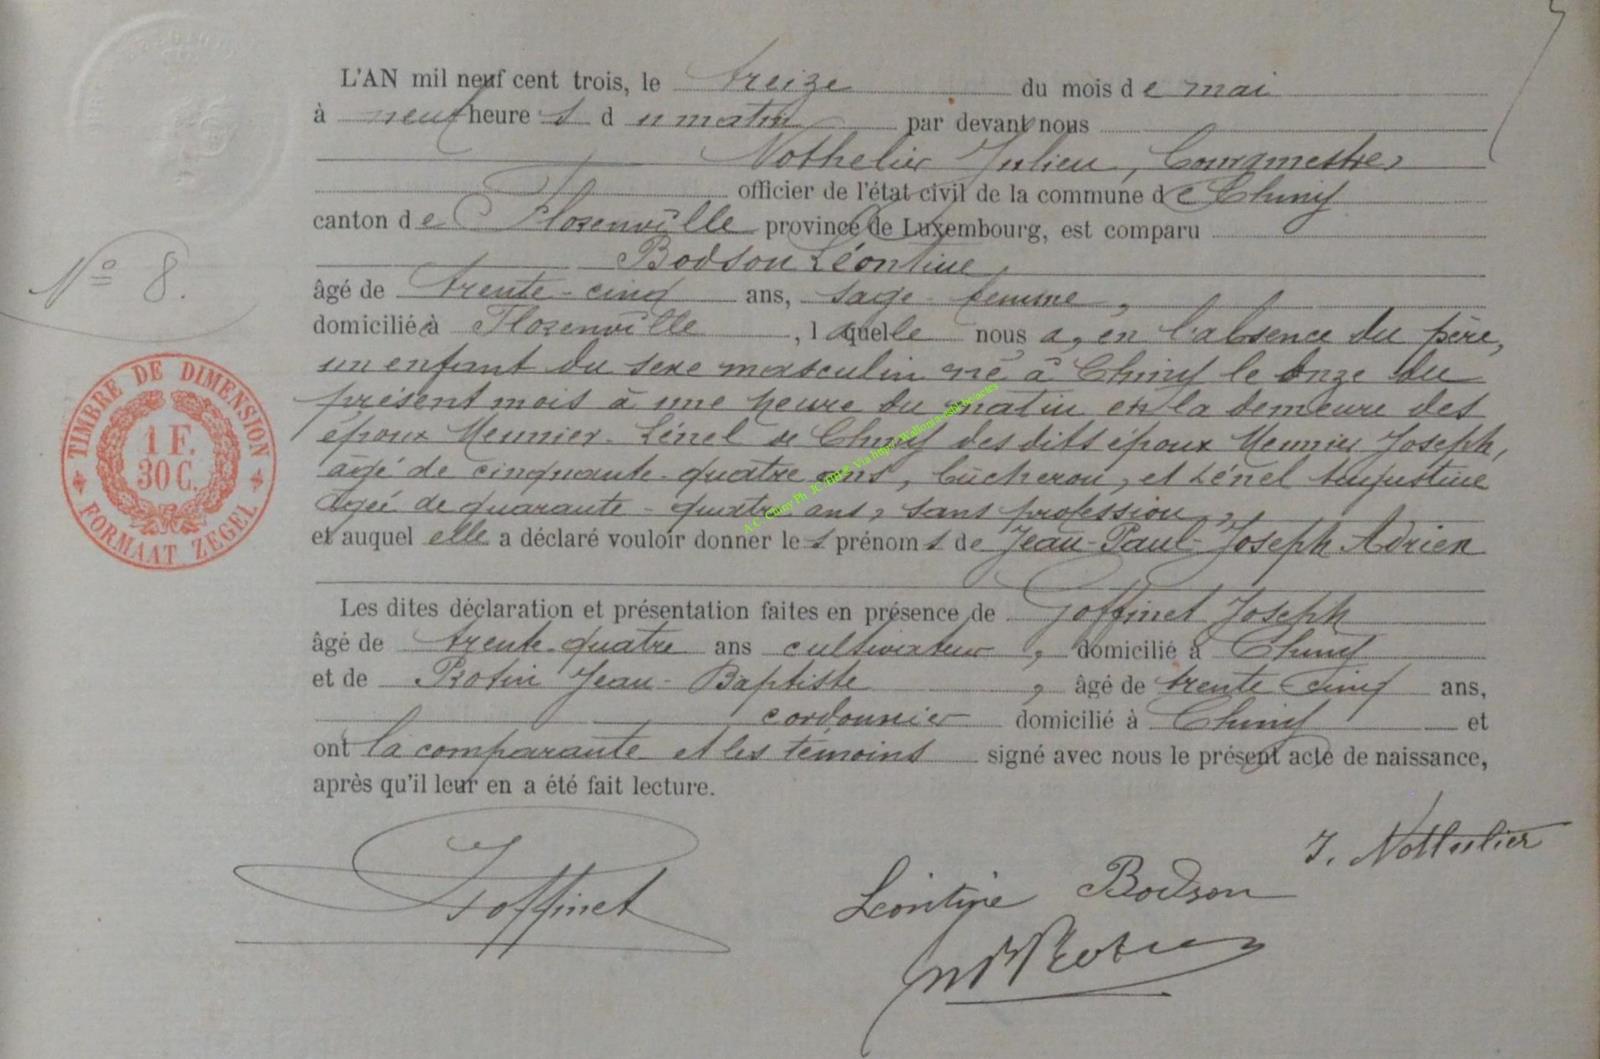 L'AN mil neuf cent trois, le treize du mois de mai
à neuf heures du matin par devant nous
Nothelier Julien, Bourgmestre,
officier de l'état civil de la commune de Chiny
canton de Florenville province de Luxembourg, est comparu
Bodson Léontine
N° 8.
âgé de trente-cinq ans, sage-femme,
domiciliée à Florenville, laquelle nous a, en l'absence du père,
un enfant du sexe masculin né à Chiny le onze du
présent mois à une heure du matin en la demeure des
époux Meunier-Lénel de Chiny des dits époux Meunier Joseph,
âgé de cinquante-quatre ans, bûcheron, et Lénel Augustine
âgée de quarante-quatre ans, sans profession,
et auquel elle a déclaré vouloir donner les prénoms de Jean-Paul-Joseph Adrien
TIMBRE DE DIMENSION
1 F.
30 C.
FORMAAT ZEGEL
Les dites déclaration et présentation faites en présence de Goffinet Joseph
âgé de trente-quatre ans cultivateur, domicilié à Chiny
et de Rotin Jean-Baptiste, âgé de trente cinq ans,
cordonnier domicilié à Chiny et
ont la comparante et les témoins signé avec nous le présent acte de naissance,
après qu'il leur en a été fait lecture.
J. Nothelier
Goffinet
Léontine Bodson
Rotin
A.C. Chiny Ph JC